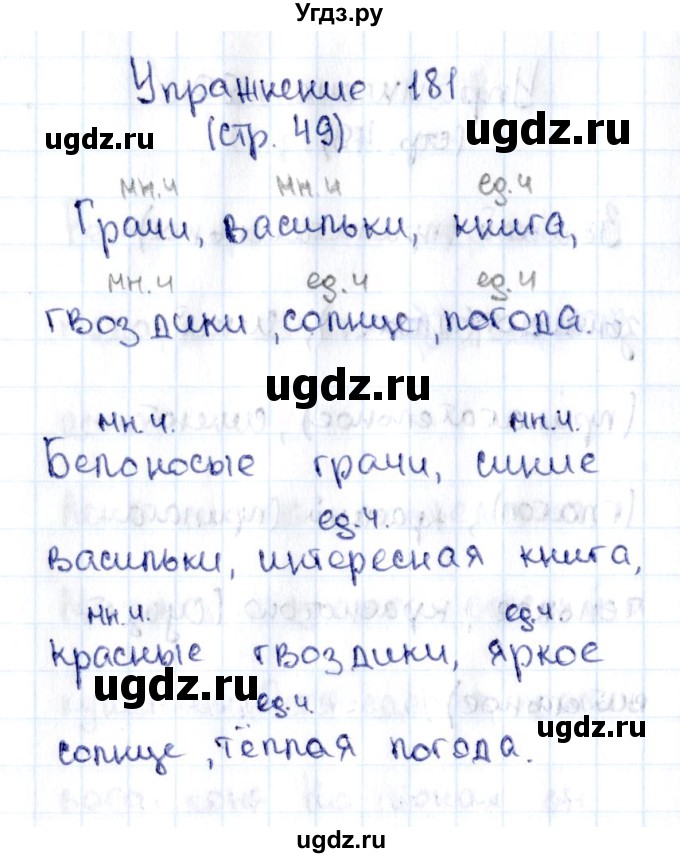 Угдз.ру
Упражнение 181
ugdz.ru (стр. 49) ugdz.ru
мн.ч мн.ч ед.ч
Грачи, васильки, книга,
мн.ч ед.ч ед.ч
гвоздики, солнце, погода.
ugdz.ru
мн.ч. мн.ч.
Белоносые грачи, синие
ед.ч.
васильки, интересная книга,
мн.ч. ед.ч.
красные гвоздики, яркое
ugdz.ru ugdz.ru
ед.ч
солнце, тёплая погода.
ugdz.ru